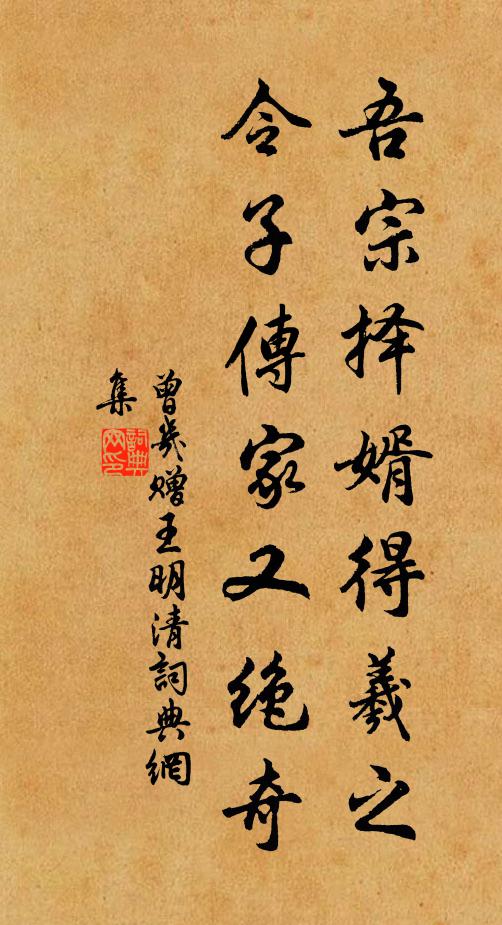 吾宗择婿得羲之
令子傳家又絶奇
曾幾贈王明清詞典網
集
詞典
网印